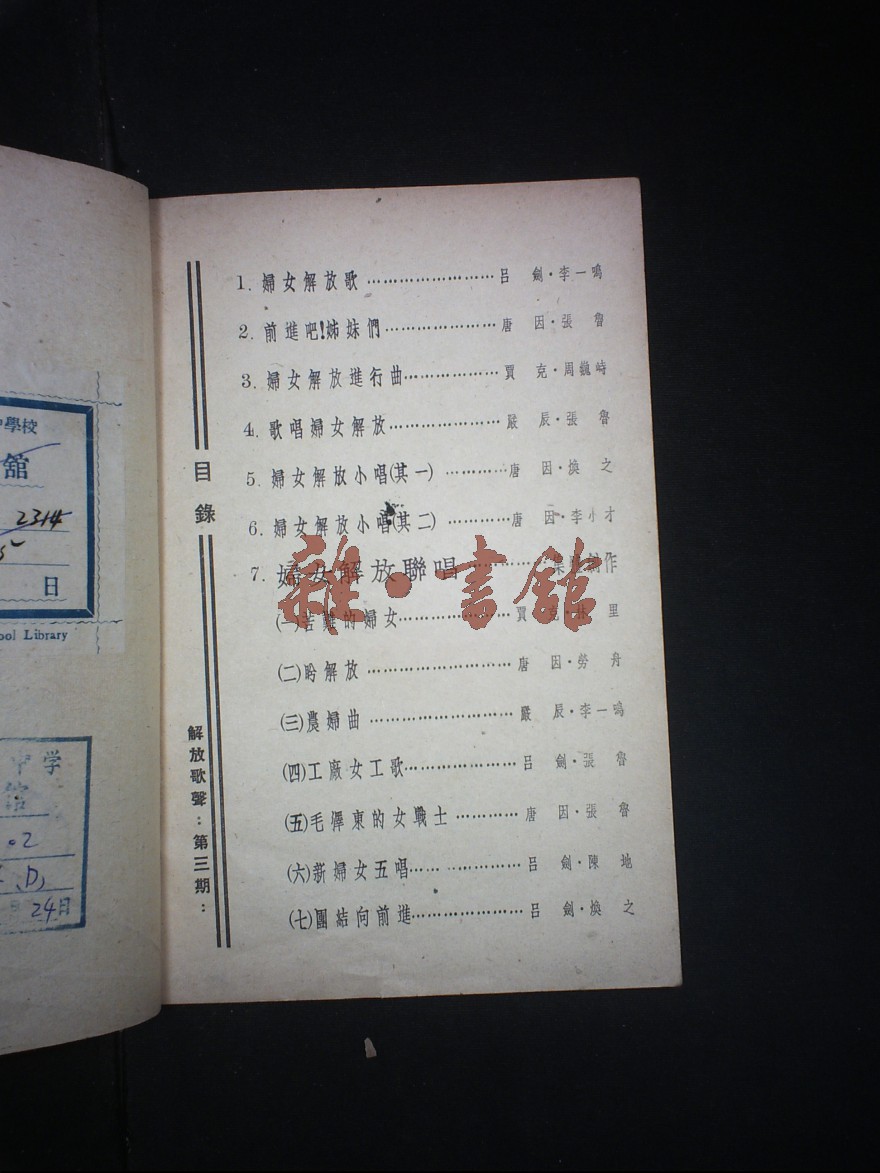 中學校
館
2314
5
日
ool Library
中学
馆
.2
.D)
24日
目錄
解放歌聲：第三期：
1. 婦女解放歌……………………呂 劍·李一鳴
2. 前進吧!姊妹們…………………唐 因·張 魯
3. 婦女解放進行曲………………賈 克·周巍峙
4. 歌唱婦女解放…………………嚴 辰·張 魯
5. 婦女解放小唱(其一)…………唐 因·煥 之
6. 婦女解放小唱(其二)…………唐 因·李小才
7. 婦女解放聯唱…………集體創作
(一)苦難的婦女…………………賈 克·林 里
(二)盼解放………………………唐 因·勞 舟
(三)農婦曲………………………嚴 辰·李一鳴
(四)工廠女工歌…………………呂 劍·張 魯
(五)毛澤東的女戰士……………唐 因·張 魯
(六)新婦女五唱…………………呂 劍·陳 地
(七)團結向前進…………………呂 劍·煥 之
雜·書館